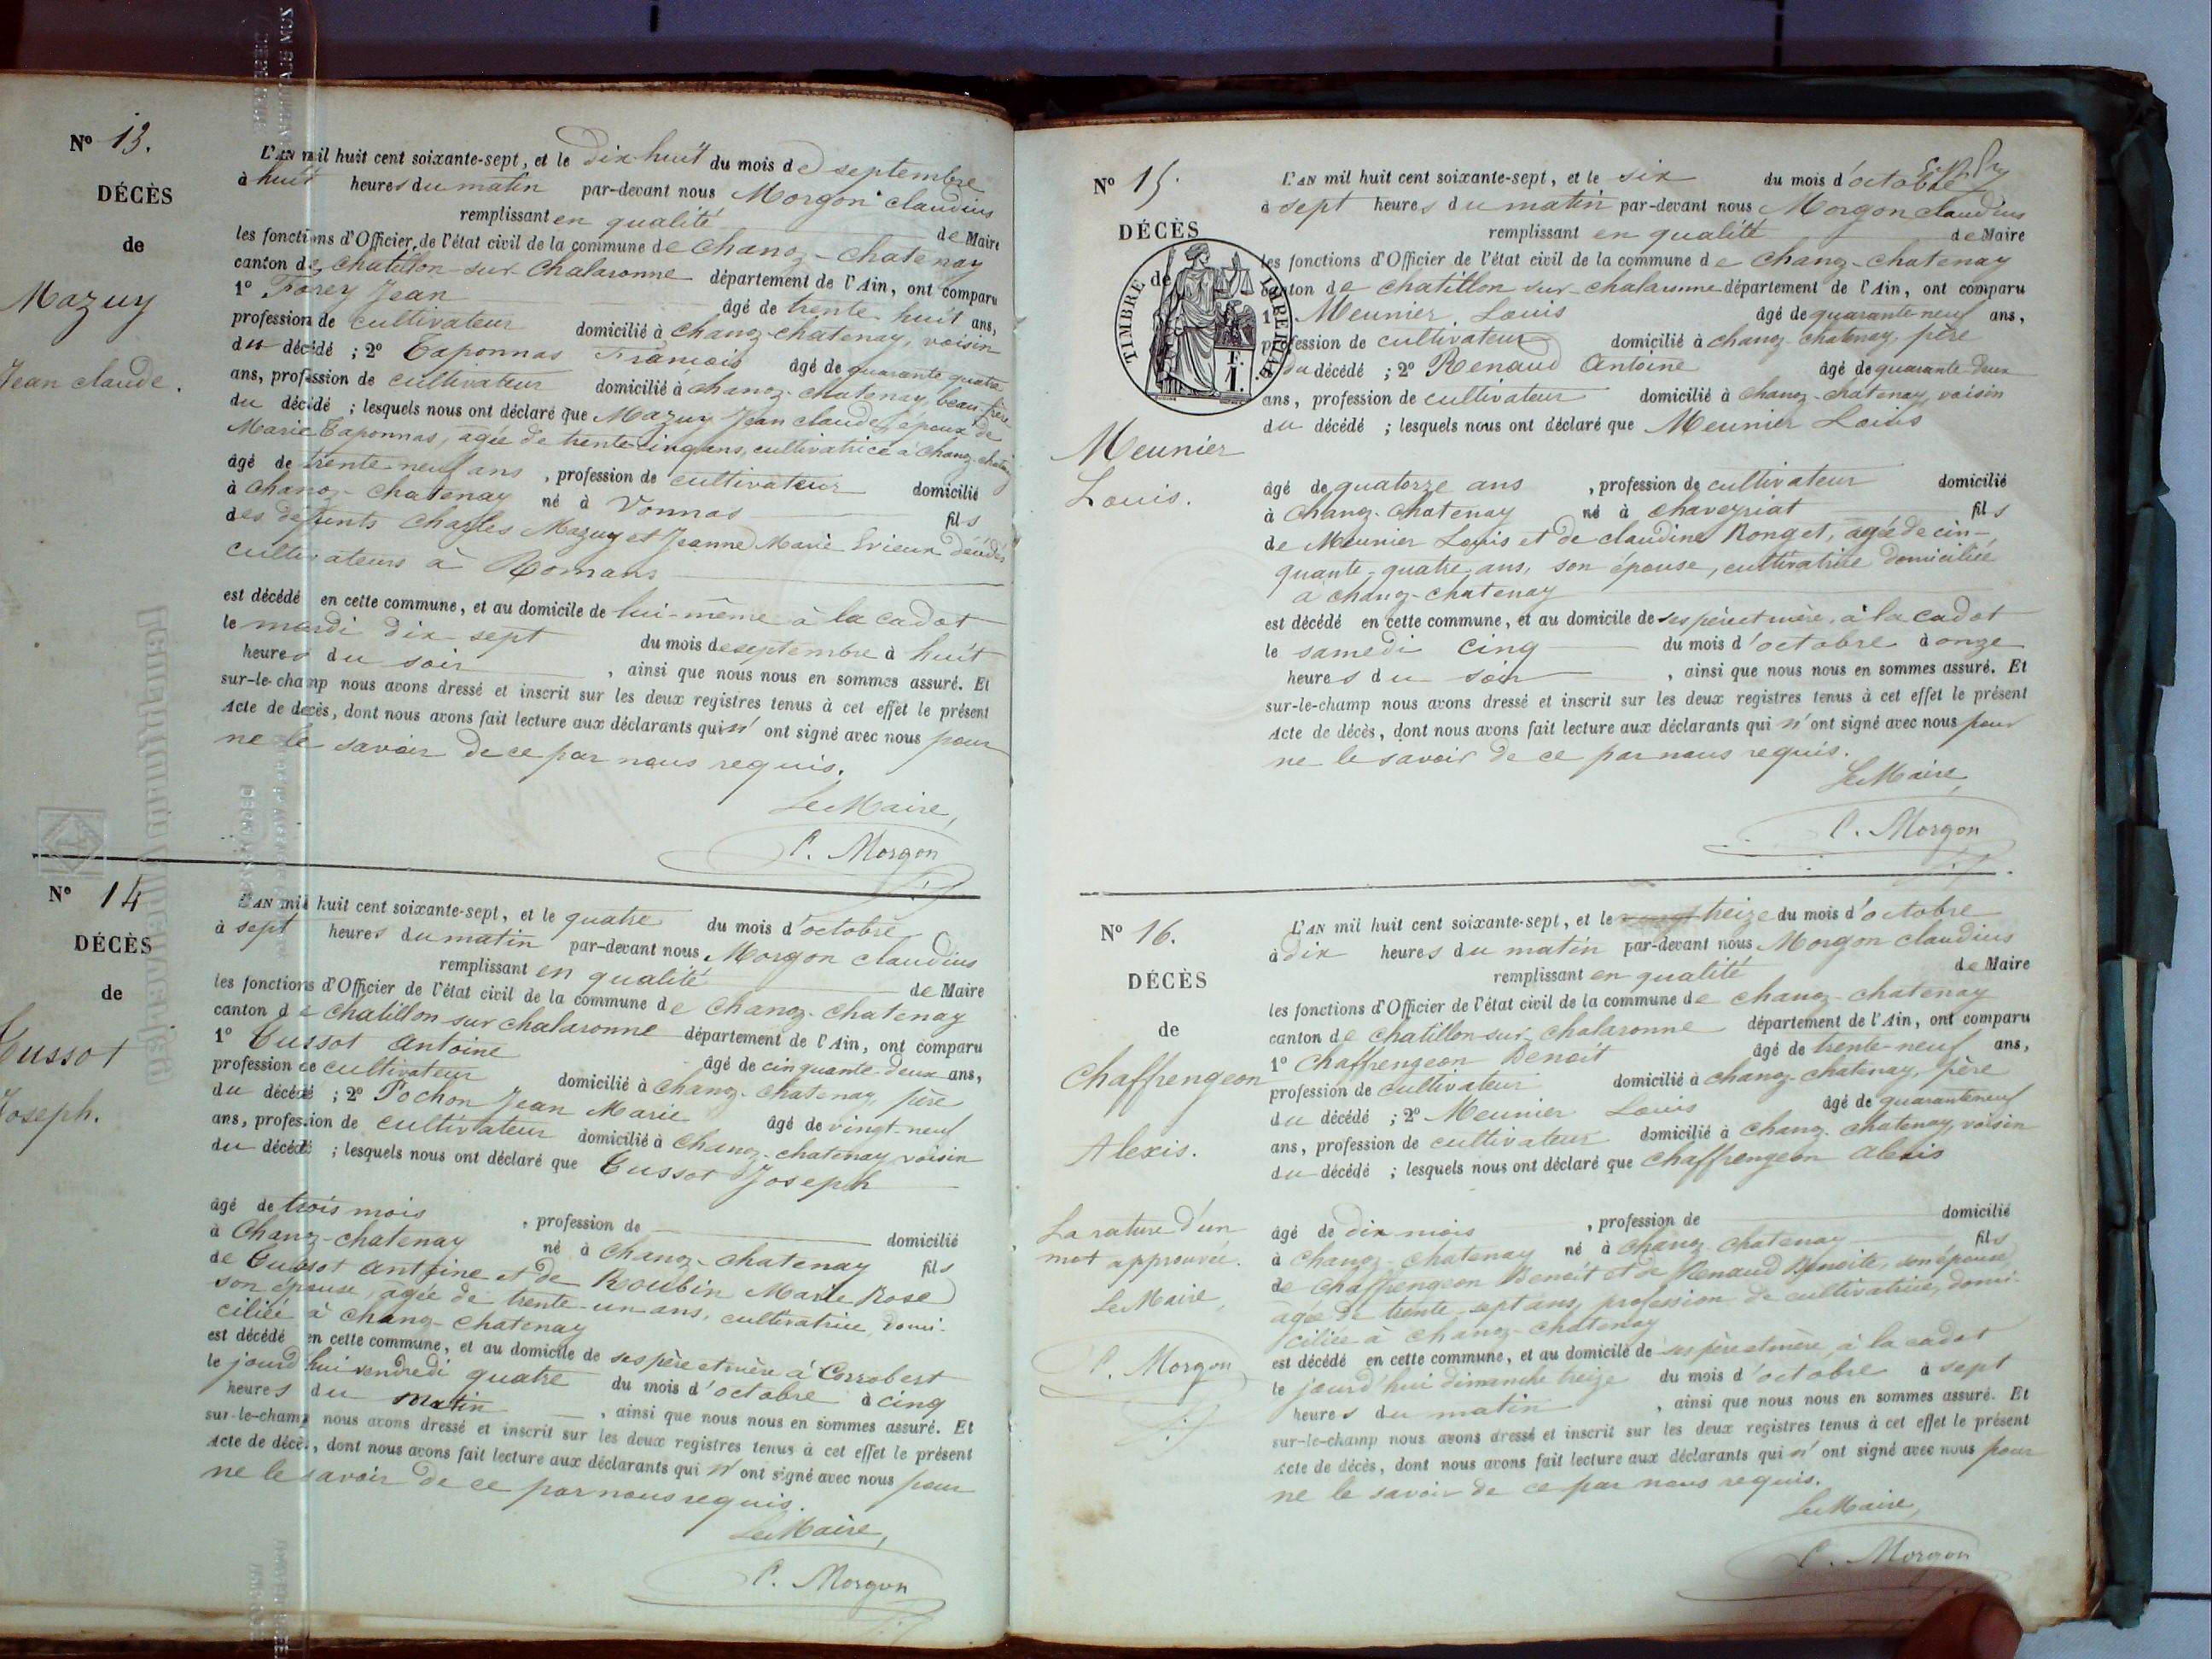 Nº 13.
DÉCÈS
de
Mazuy
Jean claude.
L'AN mil huit cent soixante-sept, et le dix huit du mois de septembre
à huit heures du matin par-devant nous Morgon claudius
remplissant en qualité de Maire
les fonctions d'Officier de l'état civil de la commune de Chanoz-Chatenay
canton de Chatillon-sur-Chalaronne département de l'Ain, ont comparu
1º Farey Jean âgé de trente huit ans,
profession de cultivateur domicilié à Chanoz-chatenay, voisin
du décédé ; 2º Taponnas François âgé de quarante quatre
ans, profession de cultivateur domicilié à Chanoz-chatenay, beau-frère
du décédé ; lesquels nous ont déclaré que Mazuy Jean claude, époux de
Marie Taponnas, agée de trente cinq ans, cultivatrice à Chanoz-chatenay
âgé de trente neuf ans , profession de cultivateur domicilié
à Chanoz-Chatenay né à Vonnas fils
des defunts Charles Mazuy et Jeanne Marie Brieux décédés
cultivateurs à Romans
est décédé en cette commune, et au domicile de lui-même à la cadot
le mardi dix-sept du mois de septembre à huit
heures du soir , ainsi que nous nous en sommes assuré. Et
sur-le-champ nous avons dressé et inscrit sur les deux registres tenus à cet effet le présent
Acte de décès, dont nous avons fait lecture aux déclarants qui n'ont signé avec nous pour
ne le savoir de ce par nous requis.
Le Maire,
C. Morgon
Nº 14
DÉCÈS
de
Cussot
Joseph.
L'AN mil huit cent soixante-sept, et le quatre du mois d'octobre
à sept heures du matin par-devant nous Morgon claudius
remplissant en qualité de Maire
les fonctions d'Officier de l'état civil de la commune de Chanoz-Chatenay
canton de Chatillon-sur chalaronne département de l'Ain, ont comparu
1º Cussot Antoine âgé de cinquante-deux ans,
profession de cultivateur domicilié à Chanoz-Chatenay, père
du décédé ; 2º Pochon Jean Marie âgé de vingt-neuf
ans, profession de cultivateur domicilié à Chanoz-chatenay, voisin
du décédé ; lesquels nous ont déclaré que Cussot Joseph
âgé de trois mois , profession de domicilié
à Chanoz-chatenay né à Chanoz-chatenay fils
de Cussot Antoine et de Roubin Marie Rose
son épouse, agée de trente-un ans, cultivatrice, domi-
ciliée à Chanoz-Chatenay
est décédé en cette commune, et au domicile de ses père et mère à Corrobert
le jourd'hui vendredi quatre du mois d'octobre à cinq
heures du matin , ainsi que nous nous en sommes assuré. Et
sur-le-champ nous avons dressé et inscrit sur les deux registres tenus à cet effet le présent
Acte de décès, dont nous avons fait lecture aux déclarants qui n'ont signé avec nous pour
ne le savoir de ce par nous requis.
Le Maire,
C. Morgon
Nº 15.
DÉCÈS
de
TIMBRE IMPÉRIAL
F.
1.
Meunier
Louis.
L'AN mil huit cent soixante-sept, et le six du mois d'octobre
à sept heures du matin par-devant nous Morgon claudius
remplissant en qualité de Maire
les fonctions d'Officier de l'état civil de la commune de Chanoz-chatenay
canton de chatillon sur-chalaronne département de l'Ain, ont comparu
1º Meunier Louis âgé de quarante-neuf ans,
profession de cultivateur domicilié à chanoz-chatenay, père
du décédé ; 2º Renaud Antoine âgé de quarante-deux
ans, profession de cultivateur domicilié à Chanoz-chatenay, voisin
du décédé ; lesquels nous ont déclaré que Meunier Louis
âgé de quatorze ans , profession de cultivateur domicilié
à Chanoz-Chatenay né à Chaveyriat fils
de Meunier Louis et de claudine Ronget, agée de cin-
quante-quatre ans, son épouse, cultivatrice domiciliée
à chanoz-chatenay
est décédé en cette commune, et au domicile de ses père et mère, à la cadot
le samedi cinq du mois d'octobre à onze
heures du soir , ainsi que nous nous en sommes assuré. Et
sur-le-champ nous avons dressé et inscrit sur les deux registres tenus à cet effet le présent
Acte de décès, dont nous avons fait lecture aux déclarants qui n'ont signé avec nous pour
ne le savoir de ce par nous requis.
Le Maire,
C. Morgon
Nº 16.
DÉCÈS
de
Chaffrengeon
Alexis.
La rature d'un
mot approuvée.
Le Maire,
C. Morgon
L'AN mil huit cent soixante-sept, et le treize du mois d'octobre
à dix heures du matin par-devant nous Morgon claudius
remplissant en qualité de Maire
les fonctions d'Officier de l'état civil de la commune de Chanoz-chatenay
canton de Chatillon-sur-Chalaronne département de l'Ain, ont comparu
1º Chaffrengeon Benoit âgé de trente-neuf ans,
profession de cultivateur domicilié à chanoz-chatenay, père
du décédé ; 2º Meunier Louis âgé de quarante neuf
ans, profession de cultivateur domicilié à Chanoz-chatenay, voisin
du décédé ; lesquels nous ont déclaré que Chaffrengeon Alexis
âgé de dix mois , profession de domicilié
à Chanoz-Chatenay né à Chanoz-Chatenay fils
de Chaffrengeon Benoit et de Renaud Benoite, son épouse,
agée de trente-sept ans, profession de cultivatrice, domi-
ciliée à Chanoz-Chatenay
est décédé en cette commune, et au domicile de ses père et mère, à la cadot
le jourd'hui dimanche treize du mois d'octobre à sept
heures du matin , ainsi que nous nous en sommes assuré. Et
sur-le-champ nous avons dressé et inscrit sur les deux registres tenus à cet effet le présent
Acte de décès, dont nous avons fait lecture aux déclarants qui n'ont signé avec nous pour
ne le savoir de ce par nous requis.
Le Maire,
C. Morgon